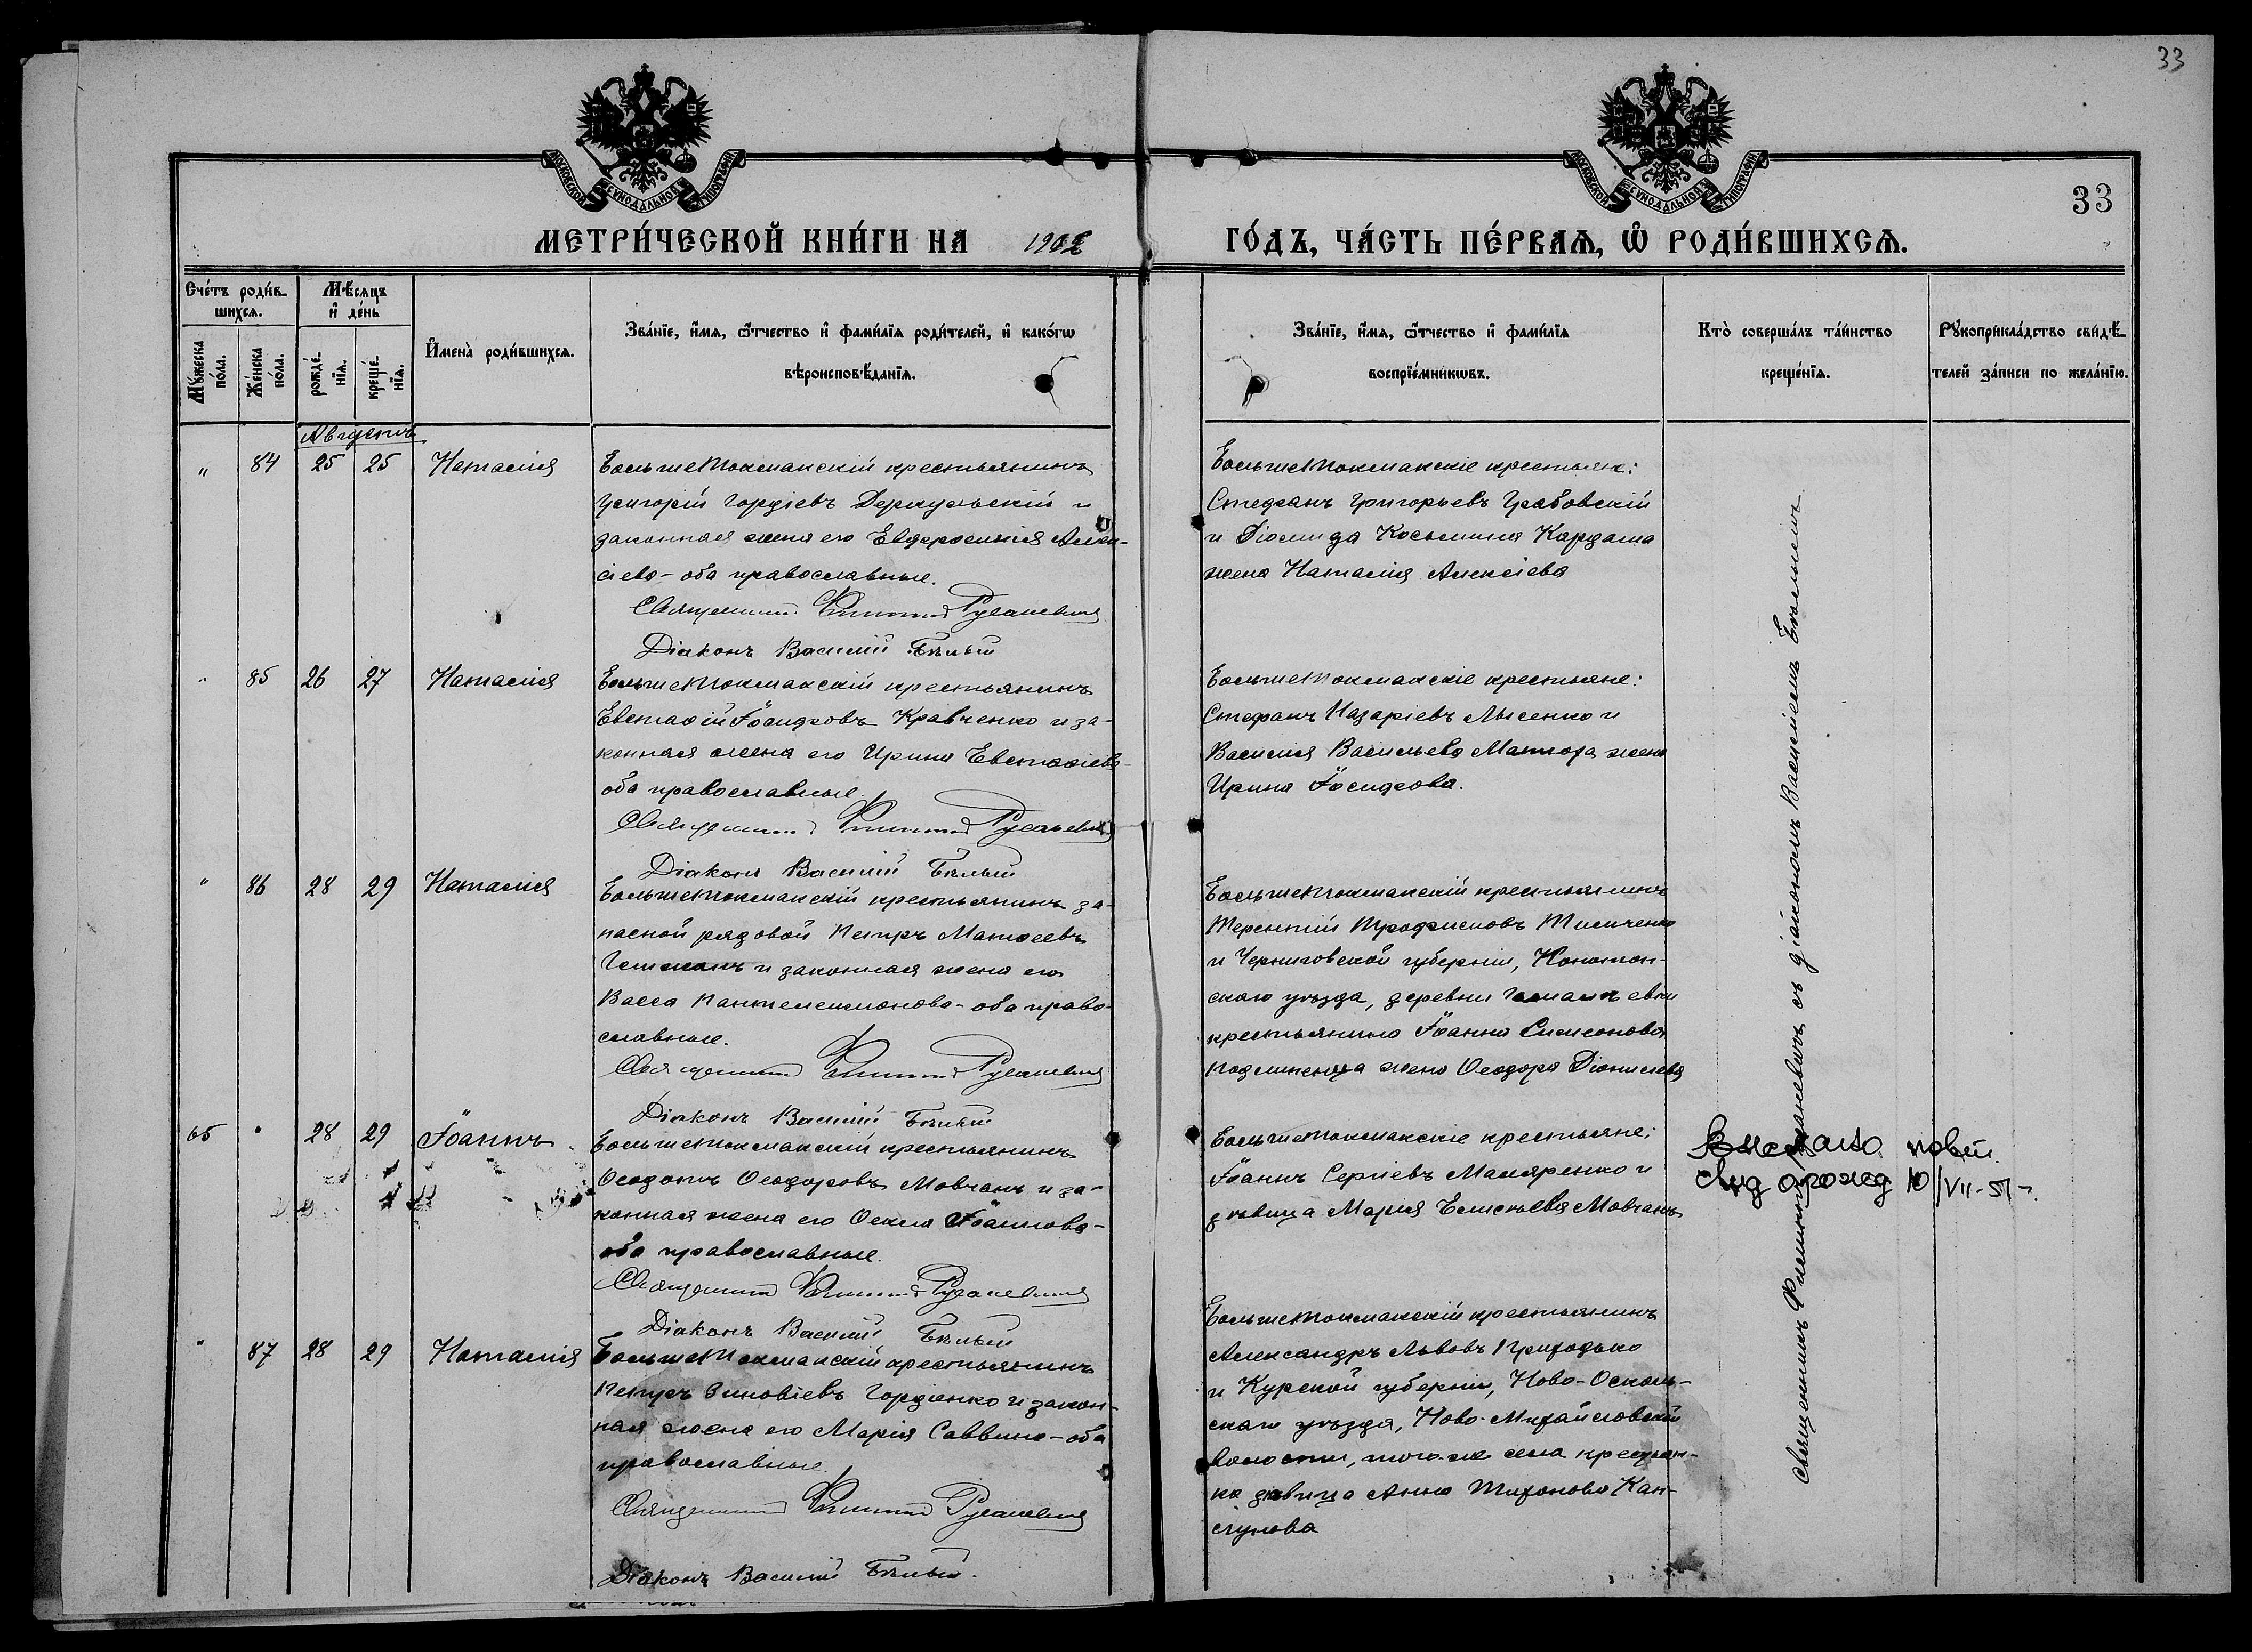 33
МОСКОВСКОЙ СУНОДАЛЬНОЙ ТИПОГРАФІИ
МОСКОВСКОЙ СУНОДАЛЬНОЙ ТИПОГРАФІИ
33
МЕТРИ́ЧЕСКОЙ КНИ́ГИ НА 1902 ГО́ДЪ, ЧА́СТЬ ПЕ́РВАѦ, Ѽ РОДИ́ВШИХСѦ.
Сче́тъ роди́в-
шихсѧ.
Мѣ́сѧцъ
и҆ де́нь
Мꙋ́жеска
по́ла.
Же́нска
по́ла.
рожде́-
нїѧ.
креще́-
нїѧ.
И҆мена̀ роди́вшихсѧ.
Зва́нїе, и҆́мѧ, ѻ҆́тчество и҆ фами́лїѧ роди́телей, и҆ како́гѡ
вѣроисповѣ́данїѧ.
Зва́нїе, и҆́мѧ, ѻ҆́тчество и҆ фами́лїѧ
воспрїе́мникѡвъ.
Кто̀ соверша́лъ та́инство
креще́нїѧ.
Рꙋкоприкла́дство свидѣ́-
телей за́писи по жела́нїю.
Августъ
" 84 25 25 Наталія
Большетокмакскій крестьянинъ
Григорій Гордіевъ Деркульскій и
законная жена его Евфросинія Алек-
сіева - оба православные.
Священникъ Филиппъ Русаневичъ
Діаконъ Василій Бѣлый
Большетокмакскіе крестьяне:
Стефанъ Григорьевъ Грабовскій
и Діомида Косьмина Кардаша
жена Наталія Алексіева
" 85 26 27 Наталія
Большетокмакскій крестьянинъ
Евстафій Іосифовъ Кравченко и за-
конная жена его Ирина Евстафіева-
оба православные.
Священникъ Филиппъ Русаневичъ
Діаконъ Василій Бѣлый
Большетокмакскіе крестьяне:
Стефанъ Назаріевъ Лысенко и
Василія Васильева жена
Ирина Іосифова.
" 86 28 29 Наталія
Большетокмакскій крестьянинъ за-
пасной рядовой Петръ Матѳеевъ
и законная жена его
Васса Пантелеимонова - оба право-
славные.
Священникъ Филиппъ Русаневичъ
Діаконъ Василій Бѣлый
Большетокмакскій крестьянинъ
Терентій Трофимовъ Тимченко
и Черниговской губерніи, Конотоп-
скаго уѣзда, деревни
крестьянина Іоанна Симеонова
жена Ѳеодора Діонисіева
65 " 28 29 Іоаннъ
Большетокмакскій крестьянинъ
Ѳеодотъ Ѳеодоровъ Мовчанъ и за-
конная жена его Ѳекла Іоаннова-
оба православные.
Священникъ Филиппъ Русаневичъ
Діаконъ Василій Бѣлый
Большетокмакскіе крестьяне:
Іоаннъ Сергіевъ Маляренко и
дѣвица Марія Мовчанъ
повтн.
свид о рожд 10/VII-51 г.
" 87 28 29 Наталія
Большетокмакскій крестьянинъ
Петръ Зиновіевъ Гордіенко и закон-
ная жена его Марія Саввина - оба
православные.
Священникъ Филиппъ Русаневичъ
Діаконъ Василій Бѣлый.
Большетокмакскій крестьянинъ
Александръ Львовъ Приходько
и Курской губерніи, Ново-Осколь-
скаго уѣзда, Ново-Михайловской
волости, того-же села крестьян-
ка дѣвица Анна Тихонова Кан-
сунова
Священникъ Филиппъ Русаневичъ съ діакономъ Василіемъ Бѣлымъ